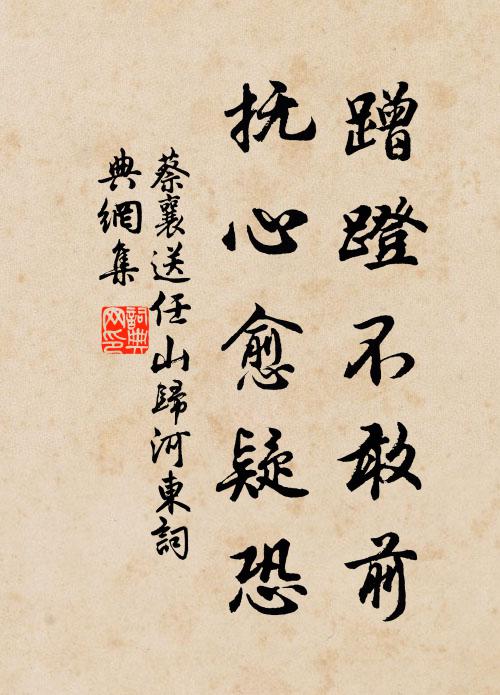 蹭蹬不敢前
抚心愈疑恐
蔡襄送任山歸河東詞
典網集
詞典網印